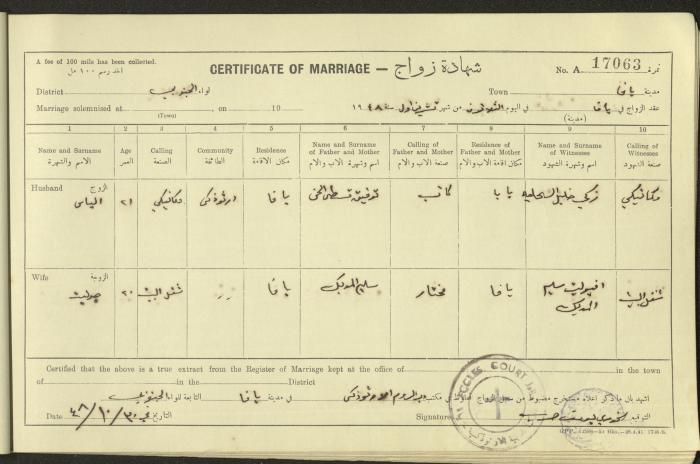 A fee of 100 mils has been collected.
CERTIFICATE OF MARRIAGE — شهادة زواج
No. A 17063 نمرة
District لواء الجنوبي Town مدينة يافا
Marriage solemnised at (Town), on 19 عقد الزواج في يافا (مدينة) في اليوم من شهر تشرين اول سنة ١٩٤٨
1 2 3 4 5 6 7 8 9 10
Name and Surname Age Calling Community Residence Name and Surname of Father and Mother Calling of Father and Mother Residence of Father and Mother Name and Surname of Witnesses Calling of Witnesses
الاسم والشهرة العمر الصنعة الطائفة مكان الاقامة اسم وشهرة الاب والام صنعة الاب والام مكان اقامة الاب والام اسم وشهرة الشهود صنعة الشهود
Husband الزوج
الياس ٢١ مكانيكي ارثوذكس يافا توفيق كاتب يافا زكي خليل مكانيكي
Wife الزوجة
جوليت ٢٠ شغل البيت " " يافا سليم المدبك مختار يافا سليم المدبك شغل البيت
Certified that the above is a true extract from the Register of Marriage kept at the office of in the town
of in the District
اشهد بان ما ذكر اعلاه مستخرج مضبوط من سجل الزواج في مكتب الروم الارثوذكس في مدينة يافا التابعة للواء الجنوبي
Date التاريخ في ٣٠/١٠/٤٨ Signature التوقيع الخوري
ECCLES. COURT